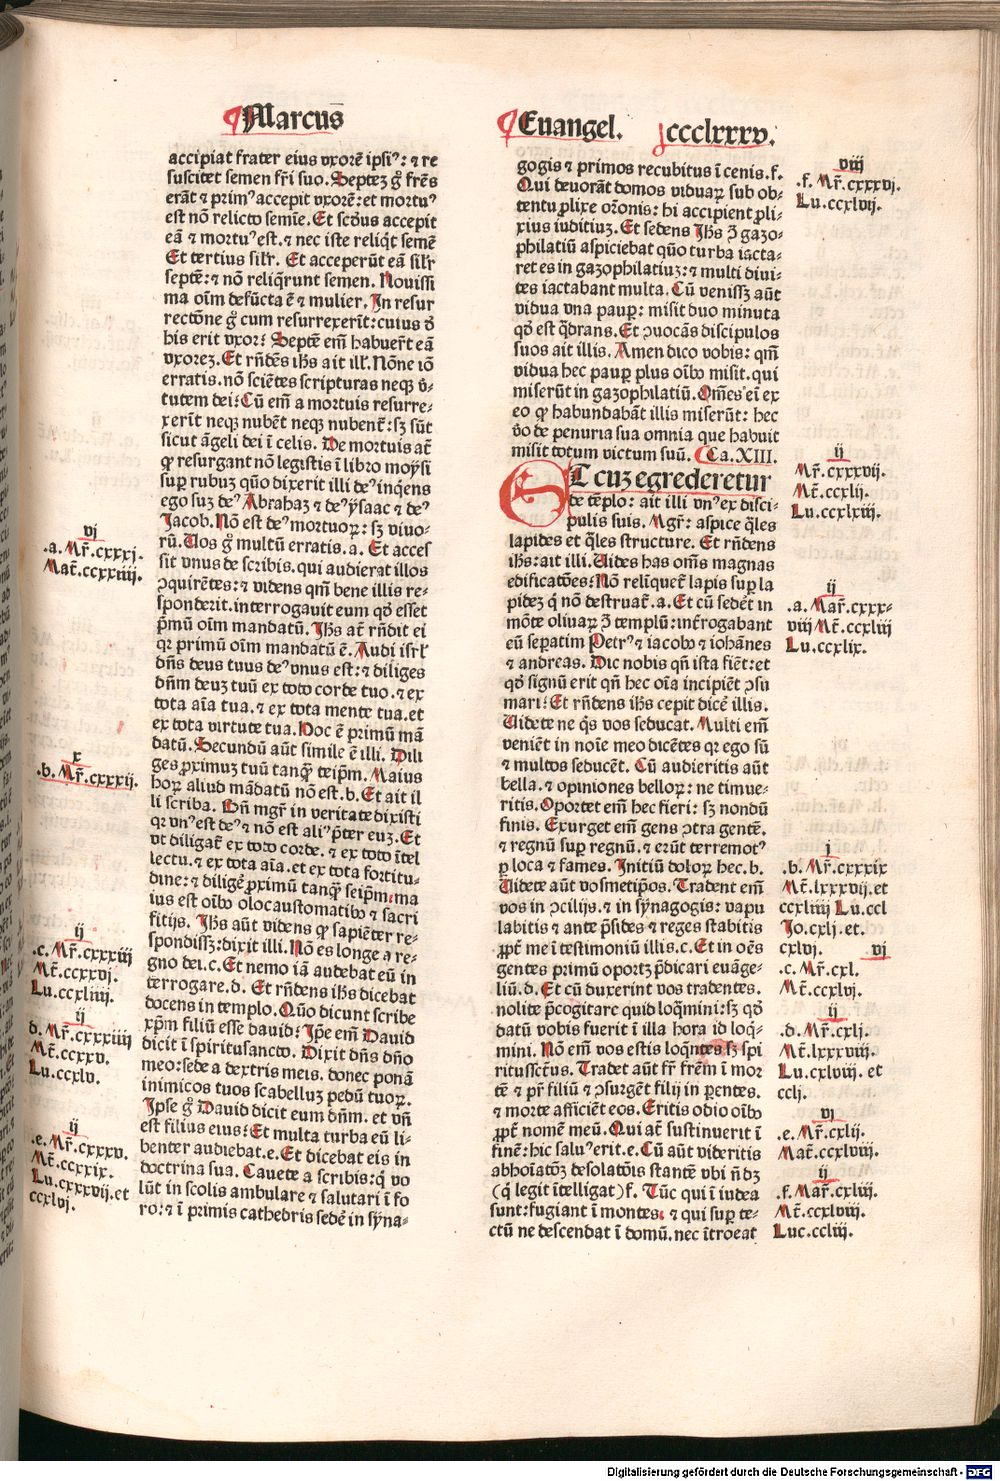 Marcus̄
accipiat frater eius vxorē ipsiꝰ: ⁊ re
suscitet semen fr̄i suo. Septeꝫ g̊ fr̄es
erāt ⁊ primꝰ accepit vxorē: et mortuꝰ
est nō relicto semīe. Et scđus accepit
eā ⁊ mortuꝰ est. ⁊ nec iste reliq̇t semē
Et tertius sil̓r. Et acceperūt eā sil̓r
septē: ⁊ nō reliq̇runt semen. Nouissi
ma oīm defūcta ē ⁊ mulier. In resur
rectōne g̊ cum resurrexerīt: cuius ď
his erit vxor? Septē em̄ habuer̄t eā
vxoreꝫ. Et rn̄dēs ih̄s ait ill̓. Nōne iō
erratis. nō sciētes scripturas neqꝫ v̓-
tutem dei? Cū em̄ a mortuis resurre-
xerīt neqꝫ nubēt neqꝫ nubent̄: sꝫ sūt
sicut āgeli dei ī celis. De mortuis at̄
ꝙ resurgant nō legistis ī libro moysi
suꝑ rubuꝫ quō dixerit illi deꝰ inq̇ens
ego suꝫ deꝰ Abrahaꝫ ⁊ deꝰ ysaac ⁊ deꝰ
Jacob. Nō est deꝰ mortuoꝝ: sꝫ viuo-
rū. Uos g̊ multū erratis. a. Et acces
sit vnus de scribis. qui audierat illos
ꝯquirētes: ⁊ videns qm̄ bene illis re-
sponderit. interrogauit eum qđ esset
p̄mū oīm mandatū. Ih̄s at̄ rn̄dit ei
qꝛ primū oīm mandatū ē. Audi isrl̓
dn̄s deus tuus deꝰ vnus est: ⁊ diliges
dn̄m deuꝫ tuū ex toto corde tuo. ⁊ ex
tota aīa tua. ⁊ ex tota mente tua. et
ex tota virtute tua. Hoc ē primū mā
datū. Secundū aūt simile ē illi. Dili
ges proximuꝫ tuū tanqꝫ teip̄m. Maius
hoꝝ aliud mādatū nō est. b. Et ait il
li scriba. Bn̄ mgr̄ in veritate dixisti
qꝛ vnꝰ est deꝰ ⁊ nō est aliꝰ p̄ter euꝫ. Et
vt diligat̄ ex toto corde. ⁊ ex toto ītel
lectu. ⁊ ex tota aīa. et ex tota fortitu-
dine: ⁊ diligē proximū tanqꝫ seip̄m: ma
ius est oībꝫ olocaustomatibꝫ ⁊ sacri
ficijs. Ih̄s aūt videns ꝙ sapiēter re-
spondissꝫ: dixit illi. Nō es longe a re-
gno dei. c. Et nemo iā audebat eū in
terrogare. d. Et rn̄dens ih̄s dicebat
docens in templo. Quō dicunt scribe
xp̄m filiū esse dauid? Ip̄e em̄ Dauid
dicit ī spiritusancto. Dixit dn̄s dn̄o
meo: sede a dextris meis. donec ponā
inimicos tuos scabelluꝫ pedū tuoꝝ.
Ipse g̊ Dauid dicit eum dn̄m. et vn̄
est filius eius? Et multa turba eū li-
benter audiebat. e. Et dicebat eis in
doctrina sua. Cauete a scribis: q̇ vo
lūt in scolis ambulare ⁊ salutari ī fo
ro: ⁊ ī primis cathedris sedē in syna-
vj
.a. Mr̄. cxxxj.
Mat̄. ccxxiiij.
x
.b. Mr̄. cxxxij.
ij
.c. Mr̄. cxxxiij
Mt̄. ccxxvj.
Lu. ccxliiij.
ij
d. Mr̄. cxxxiiij
Mt̄. ccxxv.
Lu. ccxlv.
ij
.e. Mr̄. cxxxv.
Mt̄. ccxxix.
Lu. cxxxvij. et
ccxlvj.
Euangel. ccclxxxv.
gogis ⁊ primos recubitus ī cenis. f.
Qui deuorāt domos viduaꝝ sub ob-
tentu prolixe or̄onis: hi accipient pli-
xius iuditiuꝫ. Et sedens Ih̄s ꝯ̄ gazo-
philatiū aspiciebat quō turba iacta-
ret es in gazophilatiuꝫ: ⁊ multi diui-
tes iactabant multa. Cū venissꝫ aūt
vidua vna pauꝑ: misit duo minuta
qđ est q̈drans. Et ꝯuocās discipulos
suos ait illis. Amen dico vobis: qm̄
vidua hec pauꝑ plus oībꝫ misit. qui
miserūt in gazophilatiū. Om̄es ei̓ ex
eo ꝙ habundabāt illis miserūt: hec
v̊o de penuria sua omnia que habuit
misit totum victum suū. Ca. XIII.
Et cuꝫ egrederetur
de tēplo: ait illi vnꝰ ex disci-
pulis suis. Mgr̄: aspice q̈les
lapides et q̈les structure. Et rn̄dens
ih̄s: ait illi. Uides has om̄s magnas
edificatōes? Nō relīquet̄ lapis suꝑ la
pideꝫ q̇ nō destruat̄. a. Et cū sedēt in
mōte oliuaꝝ ꝯ̄ templū: int̄rogabant
eū seꝑatim Petrꝰ ⁊ iacobꝫ ⁊ iohānes
⁊ andreas. Dic nobis qn̄ ista fiēt: et
qđ signū erit qn̄ hec oīa incipiēt ꝯsu
mari? Et rn̄dens ih̄s cepit dicē illis.
Uidete ne q̇s vos seducat. Multi em̄
veniēt in noīe meo dicētes qꝛ ego sū
⁊ multos seducēt. Cū audieritis aūt
bella. ⁊ opiniones belloꝝ: ne timue-
ritis. Oportet em̄ hec fieri: sꝫ nondū
finis. Exurget em̄ gens ꝯtra gentē.
⁊ regnū suꝑ regnū. ⁊ erūt terremotꝰ
ꝑ loca ⁊ fames. Initiū doloꝝ hec. b.
Uidete aūt vosmetip̄os. Tradent em̄
vos in ꝯcilijs. ⁊ in synagogis: vapu
labitis ⁊ ante p̄sides ⁊ reges stabitis
propt̄ me ī testimoniū illis. c. Et in oēs
gentes primū oportꝫ p̄dicari euāge-
liū. d. Et cū duxerint vos tradentes.
nolite p̄cogitare quid loq̇mini: sꝫ qđ
datū vobis fuerit ī illa hora id loq̇-
mini. Nō em̄ vos estis loq̇ntes sꝫ spi
ritussc̄tus. Tradet aūt fr̄ frēm ī mor
tē ⁊ pr̄ filiū ⁊ ꝯsurgēt filij in ꝑentes.
⁊ morte afficiēt eos. Eritis odio oībꝫ
propt̄ nomē meū. Qui at̄ sustinuerit ī
finē: hic saluꝰ erit. e. Cū aūt videritis
abhoīatōꝫ desolatōis stantē vbi n̄ dꝫ
(q̇ legit ītelligat) f. Tūc qui ī iudea
sunt: fugiant ī montes: ⁊ qui suꝑ te-
ctū ne descendat ī domū. nec ītroeat
viij
.f. Mr̄. cxxxvj.
Lu. ccxlvij.
ij
Mr̄. cxxxvij.
Mt̄. ccxlij.
Lu. ccxlviij.
ij
.a. Mar̄. cxxx-
viij Mt̄. ccxliij
Lu. ccxlix.
j
.b. Mr̄. cxxxix
Mt̄. lxxxvij. et
ccxliiij Lu. ccl
Jo. cxlj. et.
cxlvj. vj
.c. Mr̄. cxl.
Mt̄. ccxlvj.
ij
.d. Mr̄. cxlj.
Mt̄. lxxxviij.
Lu. cxlviij. et
cclj.
vj
.e. Mr̄. cxlij.
Mat̄. ccxlviij.
ij
.f. Mar̄. cxliij.
Mt̄. ccxlviij.
Luc. ccliij.
Digitalisierung gefördert durch die Deutsche Forschungsgemeinschaft - DFG